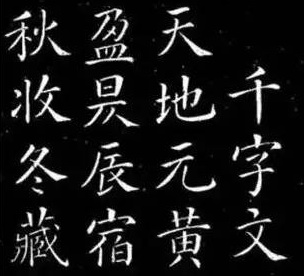 千字文
天地元黄
盈昃辰宿
秋收冬藏